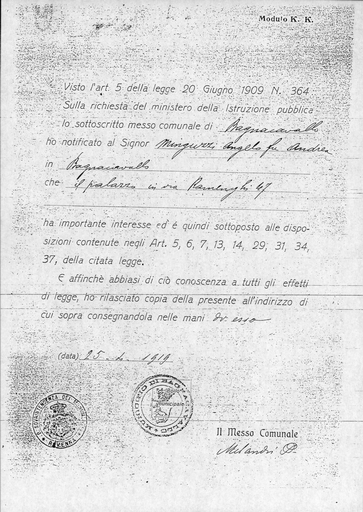 Modulo K. K.
Visto l'art. 5 della legge 20 Giugno 1909 N. 364
Sulla richiesta del ministero della Istruzione pubblica
lo sottoscritto messo comunale di Bagnacavallo
ho notificato al Signor Minguzzi Angelo fu Andrea
in Bagnacavallo
che il palazzo in via Ramenghi 47
ha importante interesse ed è quindi sottoposto alle dispo-
sizioni contenute negli Art. 5, 6, 7, 13, 14, 29, 31, 34,
37, della citata legge.
E affinchè abbiasi di ciò conoscenza a tutti gli effetti
di legge, ho rilasciato copia della presente all'indirizzo di
cui sopra consegnandola nelle mani di esso
(data) 25. 1919
MUNICIPIO DI BAGNACAVALLO
RAVENNA
Il Messo Comunale
Melandri P.